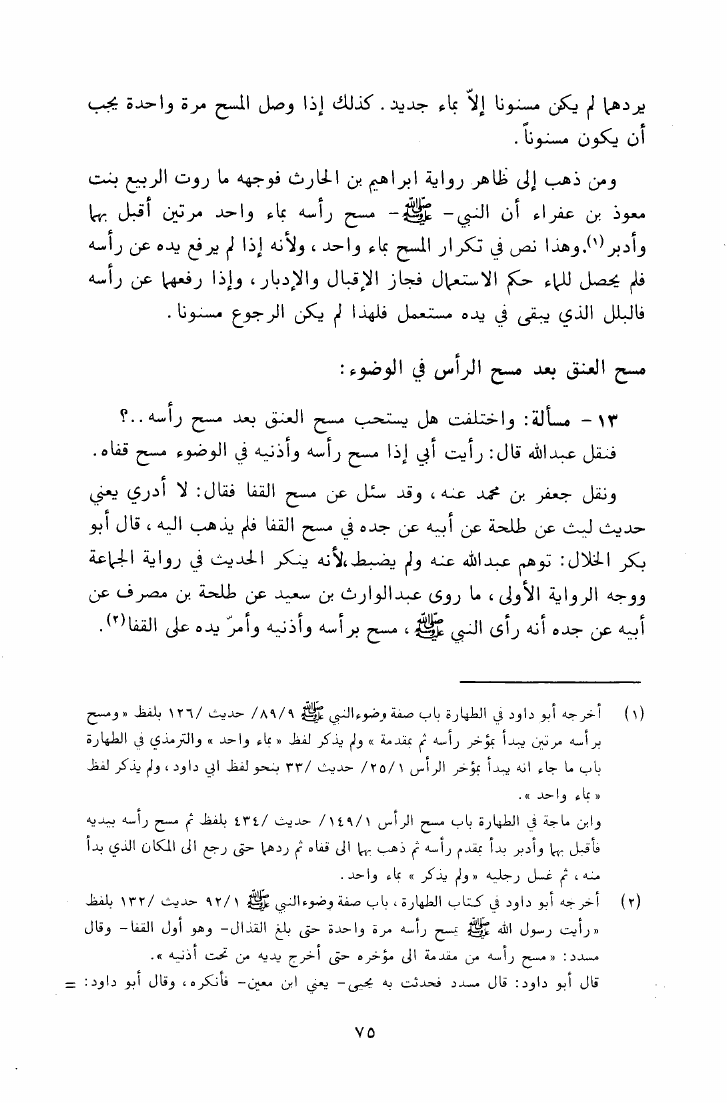 يردهما لم يكن مسنونا إلاّ بماء جديد. كذلك إذا وصل المسح مرة واحدة يجب
أن يكون مسنوناً.
ومن ذهب إلى ظاهر رواية ابراهيم بن الحارث فوجهه ما روت الربيع بنت
معوذ بن عفراء أن النبي- ﷺ - مسح رأسه بماء واحد مرتين أقبل بهما
وأدبر(١).وهذا نص في تكرار المسح بماء واحد، ولأنه إذا لم يرفع يده عن رأسه
فلم يحصل للماء حكم الاستعمال فجاز الإقبال والإدبار، وإذا رفعهما عن رأسه
فالبلل الذي يبقى في يده مستعمل فلهذا لم يكن الرجوع مسنونا.
مسح العنق بعد مسح الرأس في الوضوء:
١٣ - مسألة: واختلفت هل يستحب مسح العنق بعد مسح رأسه..؟
فنقل عبدالله قال: رأيت أبي إذا مسح رأسه وأذنيه في الوضوء مسح قفاه.
ونقل جعفر بن محمد عنه، وقد سئل عن مسح القفا فقال: لا أدري يعني
حديث ليث عن طلحة عن أبيه عن جده في مسح القفا فلم يذهب اليه، قال أبو
بكر الخلال: توهم عبدالله عنه ولم يضبط،لأنه ينكر الحديث في رواية الجماعة
ووجه الرواية الأولى، ما روى عبدالوارث بن سعيد عن طلحة بن مصرف عن
أبيه عن جده أنه رأى النبي ﷺ، مسح برأسه وأذنيه وأمرّ يده على القفا(٢).
(١) أخرجه أبو داود في الطهارة باب صفة وضوءالنبي ﷺ ٨٩/٩/ حديث /١٢٦ بلفظ «ومسح
برأسه مرتين يبدأ بمؤخر رأسه ثم بمقدمة» ولم يذكر لفظ «بماء واحد» والترمذي في الطهارة
باب ما جاء انه يبدأ بمؤخر الرأس ٢٥/١/ حديث /٣٣ بنحو لفظ ابي داود، ولم يذكر لفظ
«بماء واحد».
وابن ماجة في الطهارة باب مسح الرأس ١٤٩/١/ حديث /٤٣٤ بلفظ ثم مسح رأسه بيديه
فأقبل بهما وأدبر بدأ بمقدم رأسه ثم ذهب بهما الى قفاه ثم ردهما حتى رجع الى المكان الذي بدأ
منه، ثم غسل رجليه «ولم يذكر» بماء واحد.
(٢) أخرجه أبو داود في كتاب الطهارة، باب صفة وضوءالنبي ﷺ ٩٢/١ حديث /١٣٢ بلفظ
«رأيت رسول الله ﷺ يمسح رأسه مرة واحدة حتى بلغ القذال- وهو أول القفا- وقال
مسدد: «مسح رأسه من مقدمة الى مؤخره حتى أخرج يديه من تحت أذنيه».
قال أبو داود: قال مسدد فحدثت به يحيى- يعني ابن معين- فأنكره، وقال أبو داود: =
٧٥